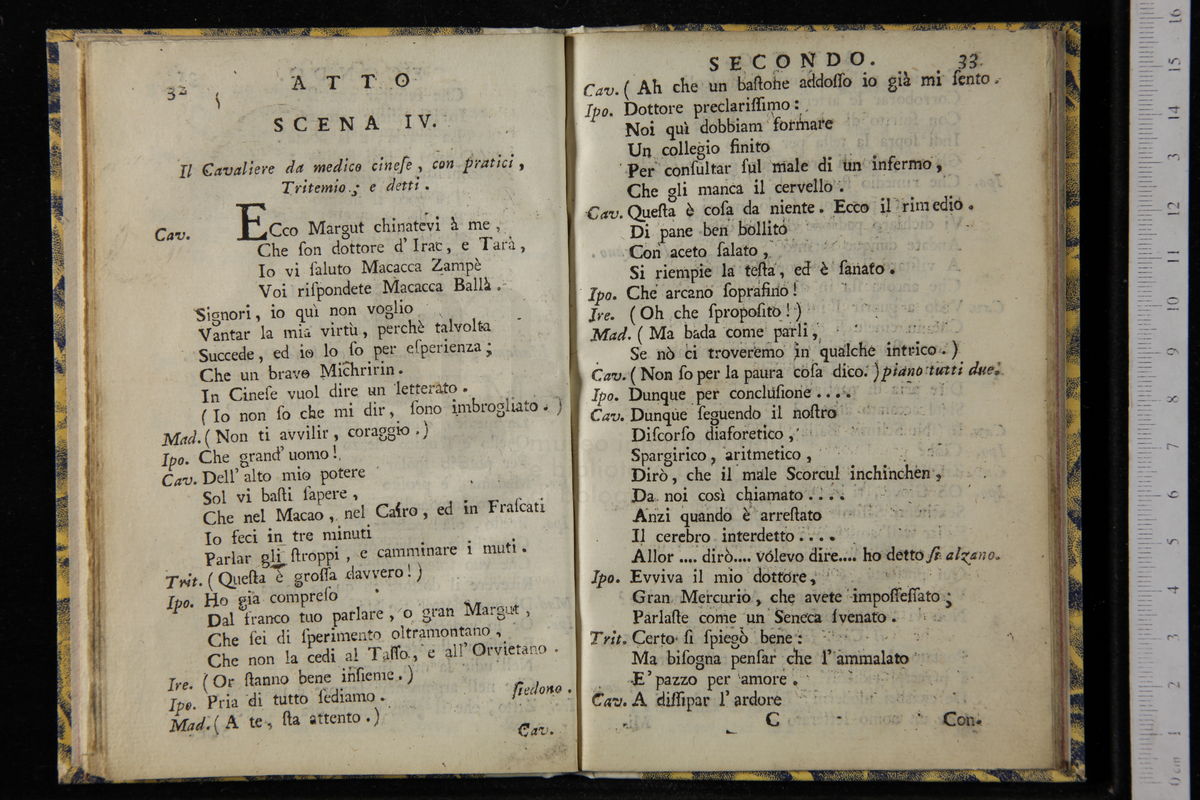 32
ATTO
SCENA IV.
Il Cavaliere da medico cineſe, con pratici,
Tritemio; e detti.
Cav. ECco Margut chinatevi à me,
Che ſon dottore d'Irac, e Tarà,
Io vi ſaluto Macacca Zampè
Voi riſpondete Macacca Ballà.
Signori, io quì non voglio
Vantar la mia virtù, perchè talvolta
Succede, ed io lo ſo per eſperienza;
Che un bravo Michririn.
In Cineſe vuol dire un letterato.
(Io non ſo che mi dir, ſono imbrogliato.)
Mad. (Non ti avvilir, coraggio.)
Ipo. Che grand'uomo!
Cav. Dell'alto mio potere
Sol vi baſti ſapere,
Che nel Macao, nel Cairo, ed in Fraſcati
Io feci in tre minuti
Parlar gli ſtroppi, e camminare i muti.
Trit. (Queſta è groſſa davvero!)
Ipo. Ho già compreſo
Dal franco tuo parlare, o gran Margut,
Che ſei di ſperimento oltramontano,
Che non la cedi al Taſſo, e all'Orvietano.
Ire. (Or ſtanno bene inſieme.)
Ipo. Pria di tutto ſediamo. ſiedono.
Mad. (A te, ſta attento.)
Cav.
SECONDO. 33
Cav. (Ah che un baſtone addoſſo io già mi ſento.
Ipo. Dottore preclariſſimo:
Noi quì dobbiam formare
Un collegio finito
Per conſultar ſul male di un infermo,
Che gli manca il cervello.
Cav. Queſta è coſa da niente. Ecco il rimedio.
Di pane ben bollito
Con aceto ſalato,
Si riempie la teſta, ed è ſanato.
Ipo. Che arcano ſoprafino!
Ire. (Oh che ſpropoſito!)
Mad. (Ma bada come parli,
Se nò ci troveremo in qualche intrico.)
Cav. (Non ſo per la paura coſa dico.) piano tutti due.
Ipo. Dunque per concluſione....
Cav. Dunque ſeguendo il noſtro
Diſcorſo diaforetico,
Spargirico, aritmetico,
Dirò, che il male Scorcul inchinchen,
Da noi così chiamato....
Anzi quando è arreſtato
Il cerebro interdetto....
Allor .... dirò.... volevo dire.... ho detto ſi alzano.
Ipo. Evviva il mio dottore,
Gran Mercurio, che avete impoſſeſſato;
Parlaſte come un Seneca ſvenato.
Trit. Certo ſi ſpiegò bene:
Ma biſogna penſar che l'ammalato
E' pazzo per amore.
Cav. A diſſipar l'ardore
C
Con-